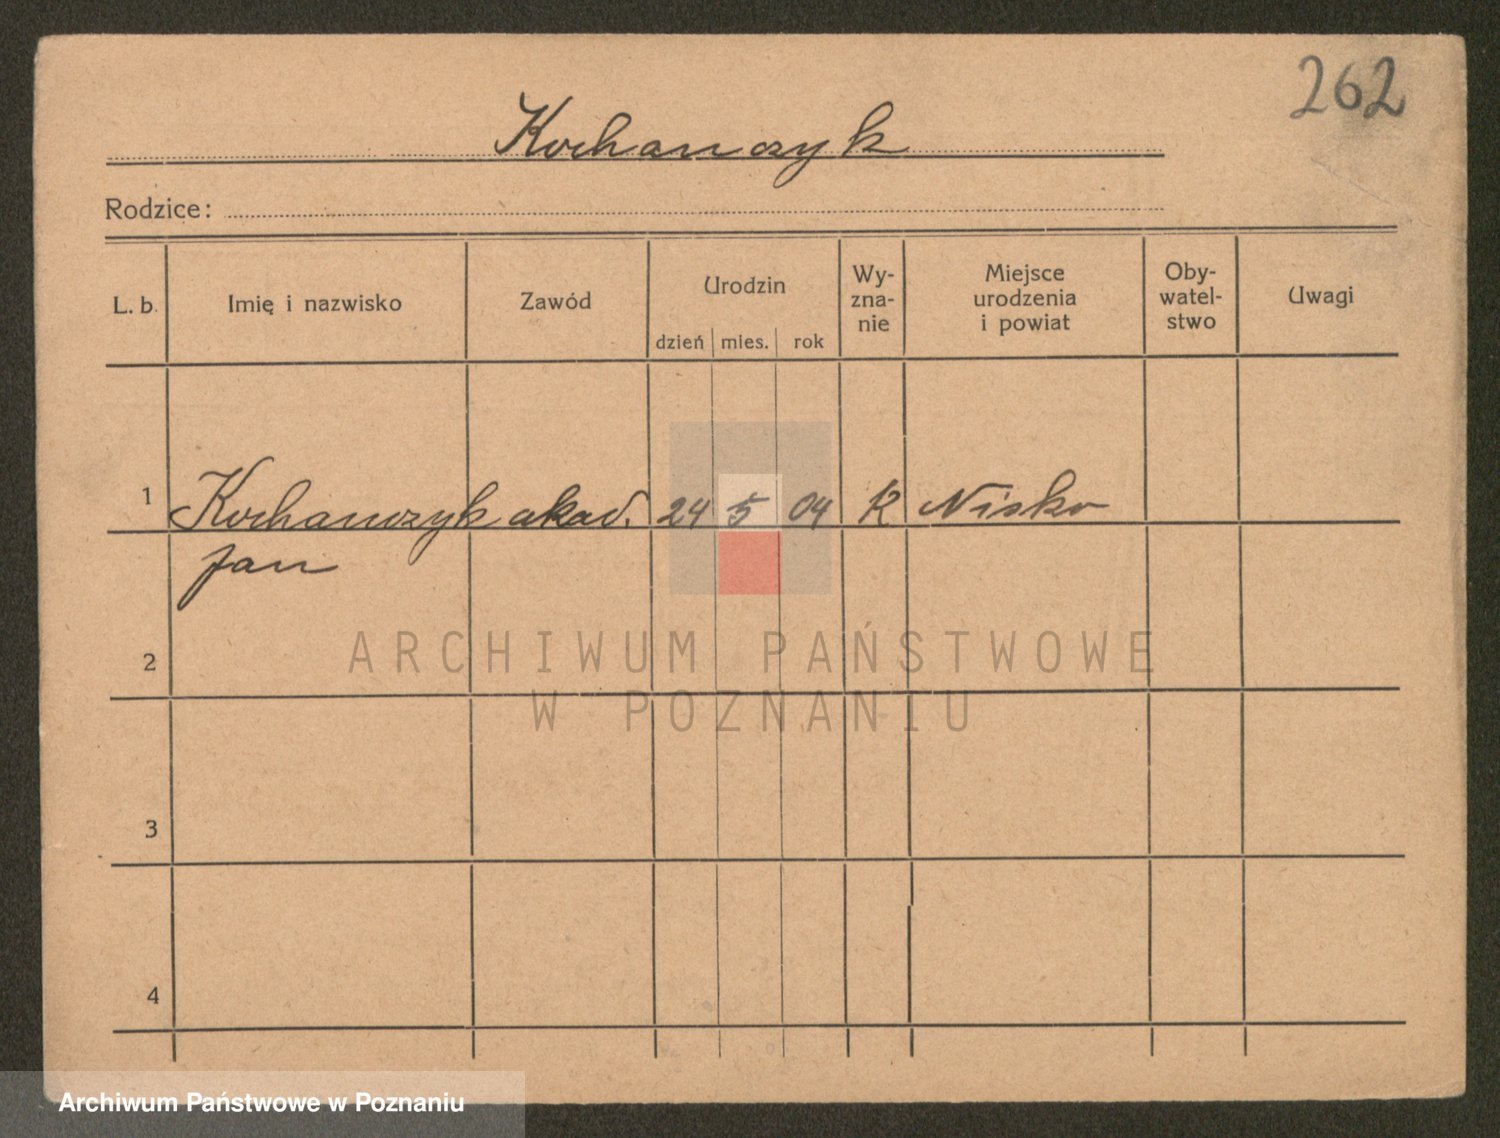 262
Kochanczyk
Rodzice:
L. b. Imię i nazwisko Zawód Urodzin dzień mies. rok Wy-zna-nie Miejsce urodzenia i powiat Oby-watel-stwo Uwagi
1 Kochanczyk akad. 24 5 04 K Nisko
Jan
2
ARCHIWUM PAŃSTWOWE
W POZNANIU
3
4
Archiwum Państwowe w Poznaniu